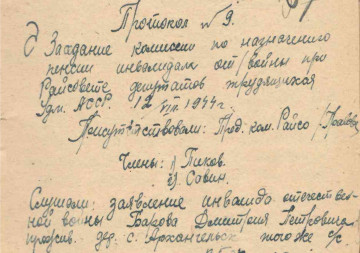 Протокол № 9.
Заседание комиссии по назначению
пенсии инвалидам от. войны при
Райсовете депутатов трудящихся
Удм. АССР. 12 VII 1944 г.
Присутствовали: Пред. ком. Райсо
Члены: 1) Пиков.
2) Савин.
Слушали: заявление инвалида отечествен
ной войны Барова Дмитрия Петровича
прожив. дер. с. Архангельск того же с/с.